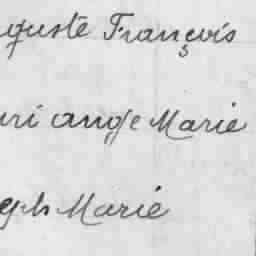 uguste François
uri ange Marie
eph Marie